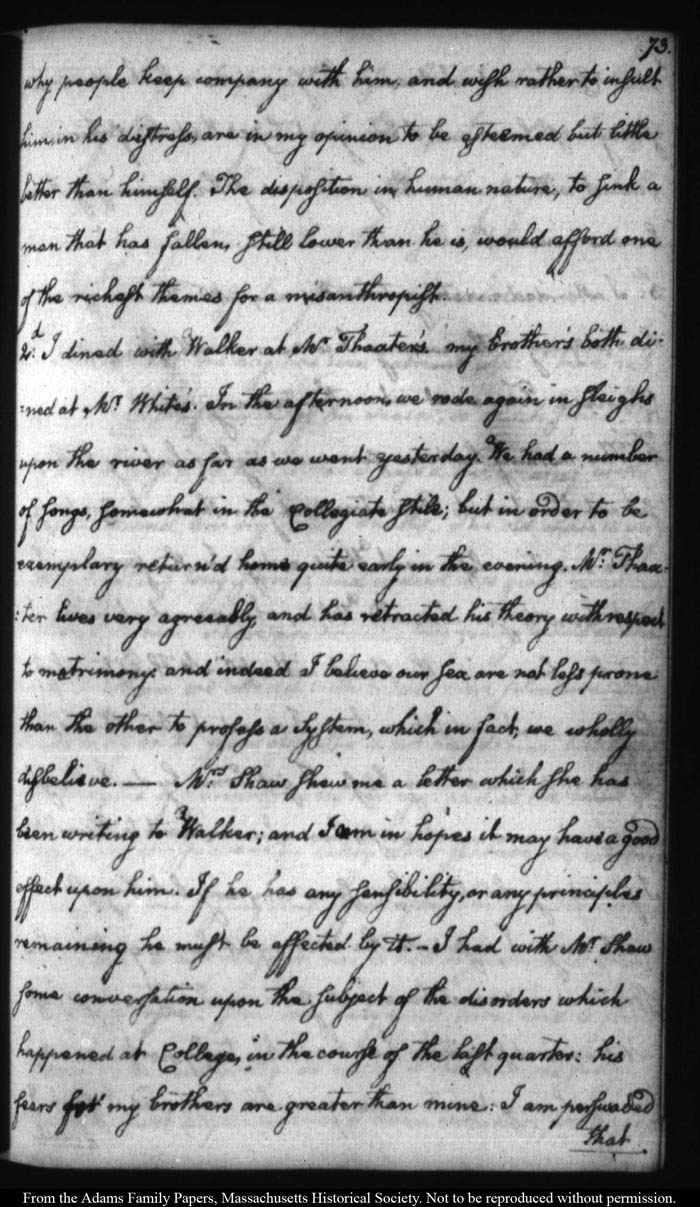 73.
why people keep company with him, and wish rather to insult
him, in his distress, are in my opinion to be esteemed but little
better than himself. The disposition in human nature, to sink a
man that has fallen, still lower than he is, would afford one
of the richest themes for a misanthropist.
2d. I dined with Walker at Mr. Thaxter's. my brother's both di-
:ned at Mr. White's. In the afternoon, we rode again in sleighs
upon the river as far as we went yesterday. We had a number
of songs, somewhat in the Collegiate stile; but in order to be
exemplary return'd home quite early in the evening. Mr. Thax-
:ter lives very agreeably and has retracted his theory with respect
to matrimony: and indeed I believe our sex are not less prone
than the other to profess a system, which in fact, we wholly
disbelieve. — Mrs. Shaw shew me a letter which she has
been writing to Walker; and I am in hopes it may have a good
effect upon him. If he has any sensibility, or any principles
remaining he must be affected by it. — I had with Mr. Shaw
some conversation upon the subject of the disorders which
happened at College, in the course of the last quarter: his
fears for my brothers are greater than mine: I am perswaded
that
From the Adams Family Papers, Massachusetts Historical Society. Not to be reproduced without permission.